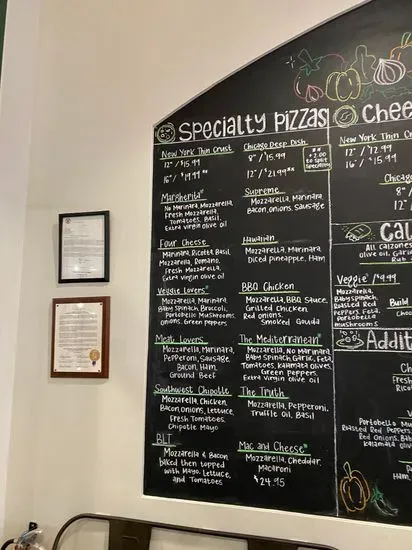 Specialty Pizzas
New York Thin Crust
12" / $15.99
16" / $19.99 **
Chicago Deep Dish
8" / $15.99
12" / $21.99 **
** +2.00
to split
Specialty
Margherita*
No Marinara, Mozzarella,
Fresh Mozzarella,
Tomatoes, Basil,
Extra virgin olive oil
Four Cheese
Marinara, Ricotta, Basil
Mozzarella, Romano,
Fresh Mozzarella,
Extra virgin olive oil
Veggie Lovers*
Mozzarella, Marinara
Baby Spinach, Broccoli,
Portobello Mushrooms
Onions, Green peppers
Meat Lovers
Mozzarella, Marinara,
Pepperoni, Sausage
Bacon, Ham,
Ground Beef
Southwest Chipotle
Mozzarella, Chicken,
Bacon, onions, Lettuce,
Fresh Tomatoes
Chipotle Mayo
BLT
Mozzarella & Bacon
baked then topped
with Mayo, Lettuce,
and Tomatoes
Supreme
Mozzarella, Marinara
Bacon, onions, Sausage
Hawaiian
Mozzarella, Marinara
Diced pineapple, Ham
BBQ Chicken
Mozzarella, BBQ Sauce,
Grilled chicken
Red onions,
Smoked Gouda
The Mediterranean*
Mozzarella, No Marinara
Baby Spinach, Garlic, Feta,
Tomatoes, Kalamata olives,
Green Peppers
Extra virgin olive oil
The Truth
Mozzarella, Pepperoni,
Truffle Oil, Basil
Mac and Cheese*
Mozzarella, Cheddar,
Macaroni
$24.95
Chee
New York Thin Crust
12" / $12.99
16" / $15.99
Chicago
8"
12"
Cal
All Calzones
olive oil, Gar
Rub
Veggie* / $9.99
Mozzarella,
Baby Spinach,
Roasted Red
Peppers, Feta,
Portobello
mushrooms
Build
Choo
Addit
Che
Fresh
Ric
Portobello Mu
Roasted Red Peppers,
Red Onions, Bab
Kalamata oliv
Peppe
Ham,